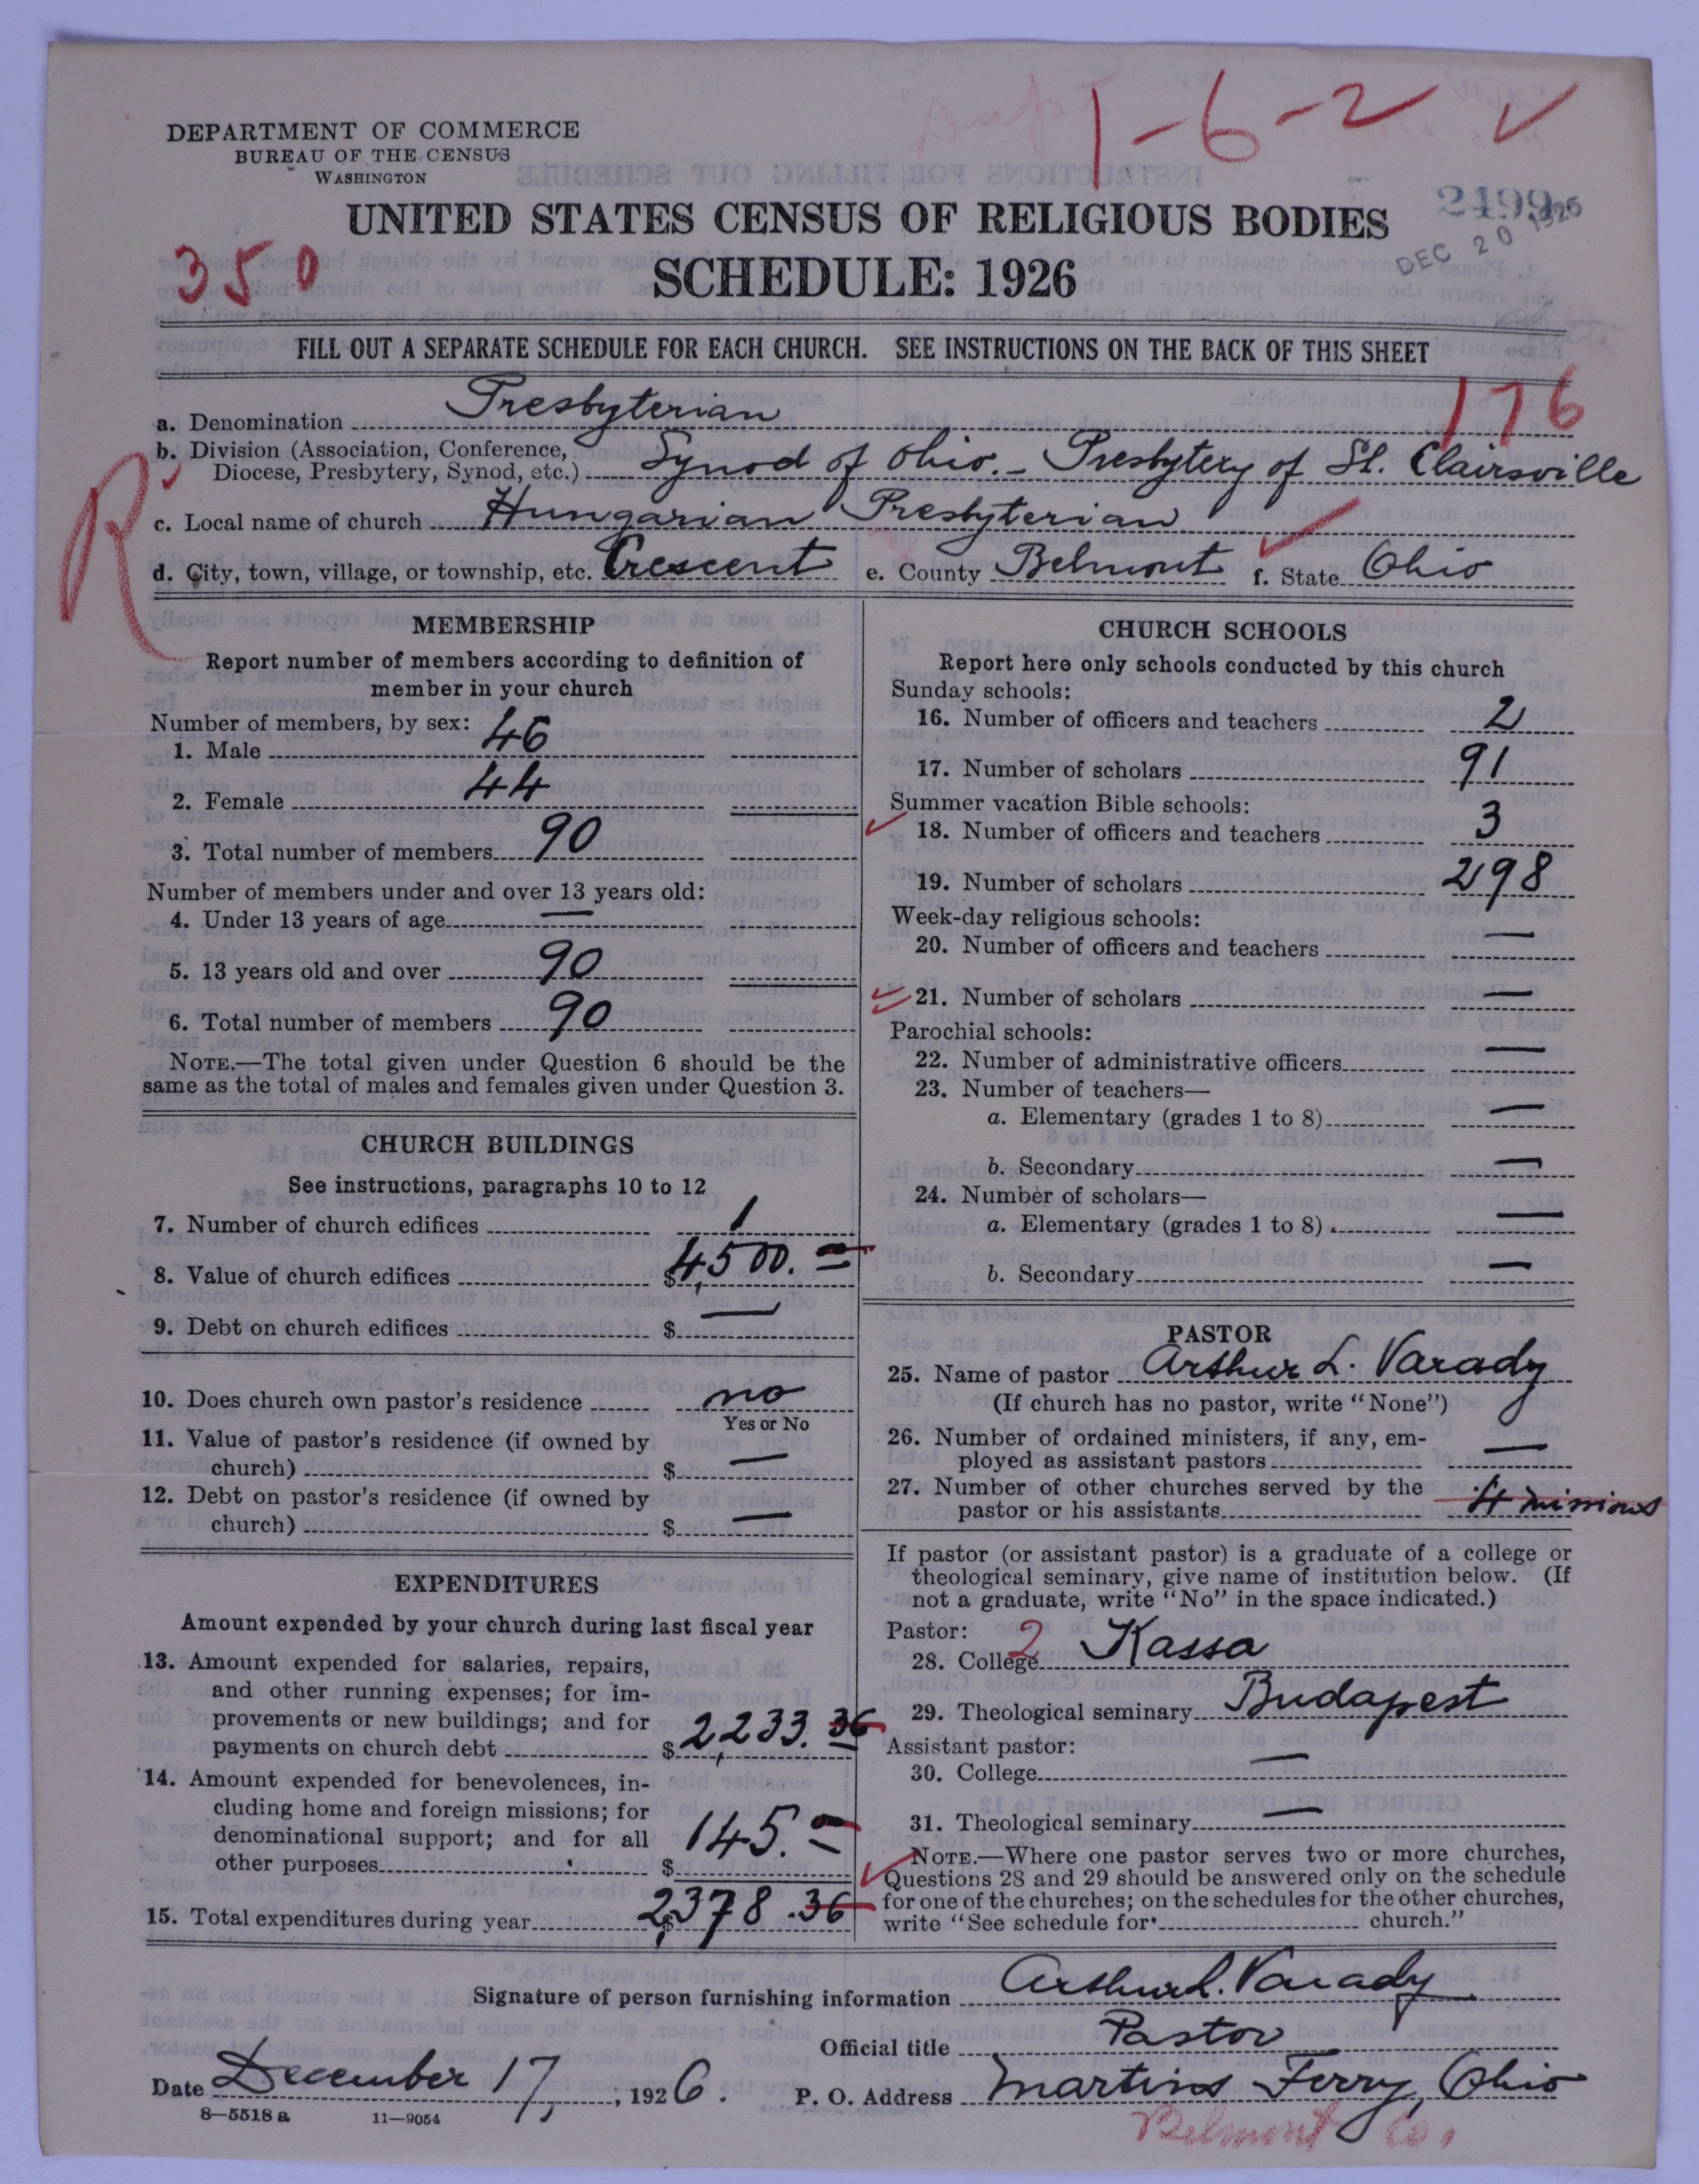 1-6-2 ✓
DEPARTMENT OF COMMERCE
BUREAU OF THE CENSUS
WASHINGTON
2499
DEC 20 1926
UNITED STATES CENSUS OF RELIGIOUS BODIES
350
SCHEDULE: 1926
FILL OUT A SEPARATE SCHEDULE FOR EACH CHURCH. SEE INSTRUCTIONS ON THE BACK OF THIS SHEET
176
a. Denomination Presbyterian
b. Division (Association, Conference,
Diocese, Presbytery, Synod, etc.) Synod of Ohio. - Presbytery of St. Clairsville
R
c. Local name of church Hungarian Presbyterian
d. City, town, village, or township, etc. Crescent e. County Belmont f. State Ohio
MEMBERSHIP
Report number of members according to definition of
member in your church
Number of members, by sex:
1. Male 46
2. Female 44
3. Total number of members 90
Number of members under and over 13 years old:
4. Under 13 years of age —
5. 13 years old and over 90
6. Total number of members 90
NOTE.—The total given under Question 6 should be the
same as the total of males and females given under Question 3.
CHURCH BUILDINGS
See instructions, paragraphs 10 to 12
7. Number of church edifices 1
8. Value of church edifices $4,500.00
9. Debt on church edifices $ —
10. Does church own pastor's residence no
Yes or No
11. Value of pastor's residence (if owned by
church) $ —
12. Debt on pastor's residence (if owned by
church) $ —
EXPENDITURES
Amount expended by your church during last fiscal year
13. Amount expended for salaries, repairs,
and other running expenses; for im-
provements or new buildings; and for
payments on church debt $2,233.36
14. Amount expended for benevolences, in-
cluding home and foreign missions; for
denominational support; and for all
other purposes $145.00
15. Total expenditures during year $2,378.36
CHURCH SCHOOLS
Report here only schools conducted by this church
Sunday schools:
16. Number of officers and teachers 2
17. Number of scholars 91
Summer vacation Bible schools:
18. Number of officers and teachers 3
19. Number of scholars 298
Week-day religious schools:
20. Number of officers and teachers —
21. Number of scholars —
Parochial schools:
22. Number of administrative officers —
23. Number of teachers—
a. Elementary (grades 1 to 8) —
b. Secondary —
24. Number of scholars—
a. Elementary (grades 1 to 8) —
b. Secondary —
PASTOR
25. Name of pastor Arthur L. Varady
(If church has no pastor, write "None")
26. Number of ordained ministers, if any, em-
ployed as assistant pastors —
27. Number of other churches served by the
pastor or his assistants 4 missions
If pastor (or assistant pastor) is a graduate of a college or
theological seminary, give name of institution below. (If
not a graduate, write "No" in the space indicated.)
Pastor: 2
28. College Kassa
29. Theological seminary Budapest
Assistant pastor:
30. College —
31. Theological seminary —
NOTE.—Where one pastor serves two or more churches,
Questions 28 and 29 should be answered only on the schedule
for one of the churches; on the schedules for the other churches,
write "See schedule for church."
Signature of person furnishing information Arthur L. Varady
Official title Pastor
Date December 17, 1926. P. O. Address Martins Ferry, Ohio
8—5518 a 11—9054
Belmont Co.